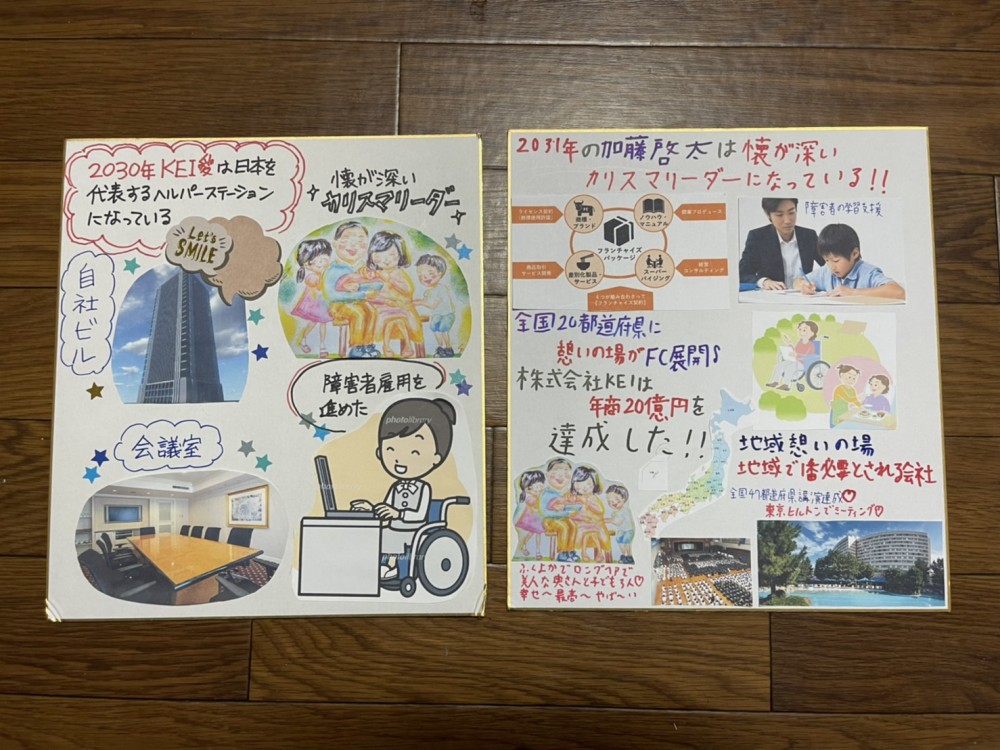 2030年KEI愛は日本を
代表するヘルパーステーション
になっている
懐が深い
カリスマリーダー
Let's
SMILE
自社ビル
障害者雇用を
進めた
photolibrary
会議室
2031年の加藤啓太は懐が深い
カリスマリーダーになっている!!
ライセンス契約
商標・
ブランド
ノウハウ・
マニュアル
フランチャイズ
パッケージ
差別化製品・
サービス
スーパー
バイジング
経営
コンサルティング
障害者の学習支援
全国20都道府県に
憩いの場がFC展開♪
株式会社KEIは
年商20億円を
達成した!!
地域憩いの場
地域で1番必要とされる会社
全国47都道府県講演達成♡
東京ヒルトンでミーティング♡
ふくよかでロングヘアで
美人な奥さんと子ども3人♡
幸せ〜最高〜やば〜い